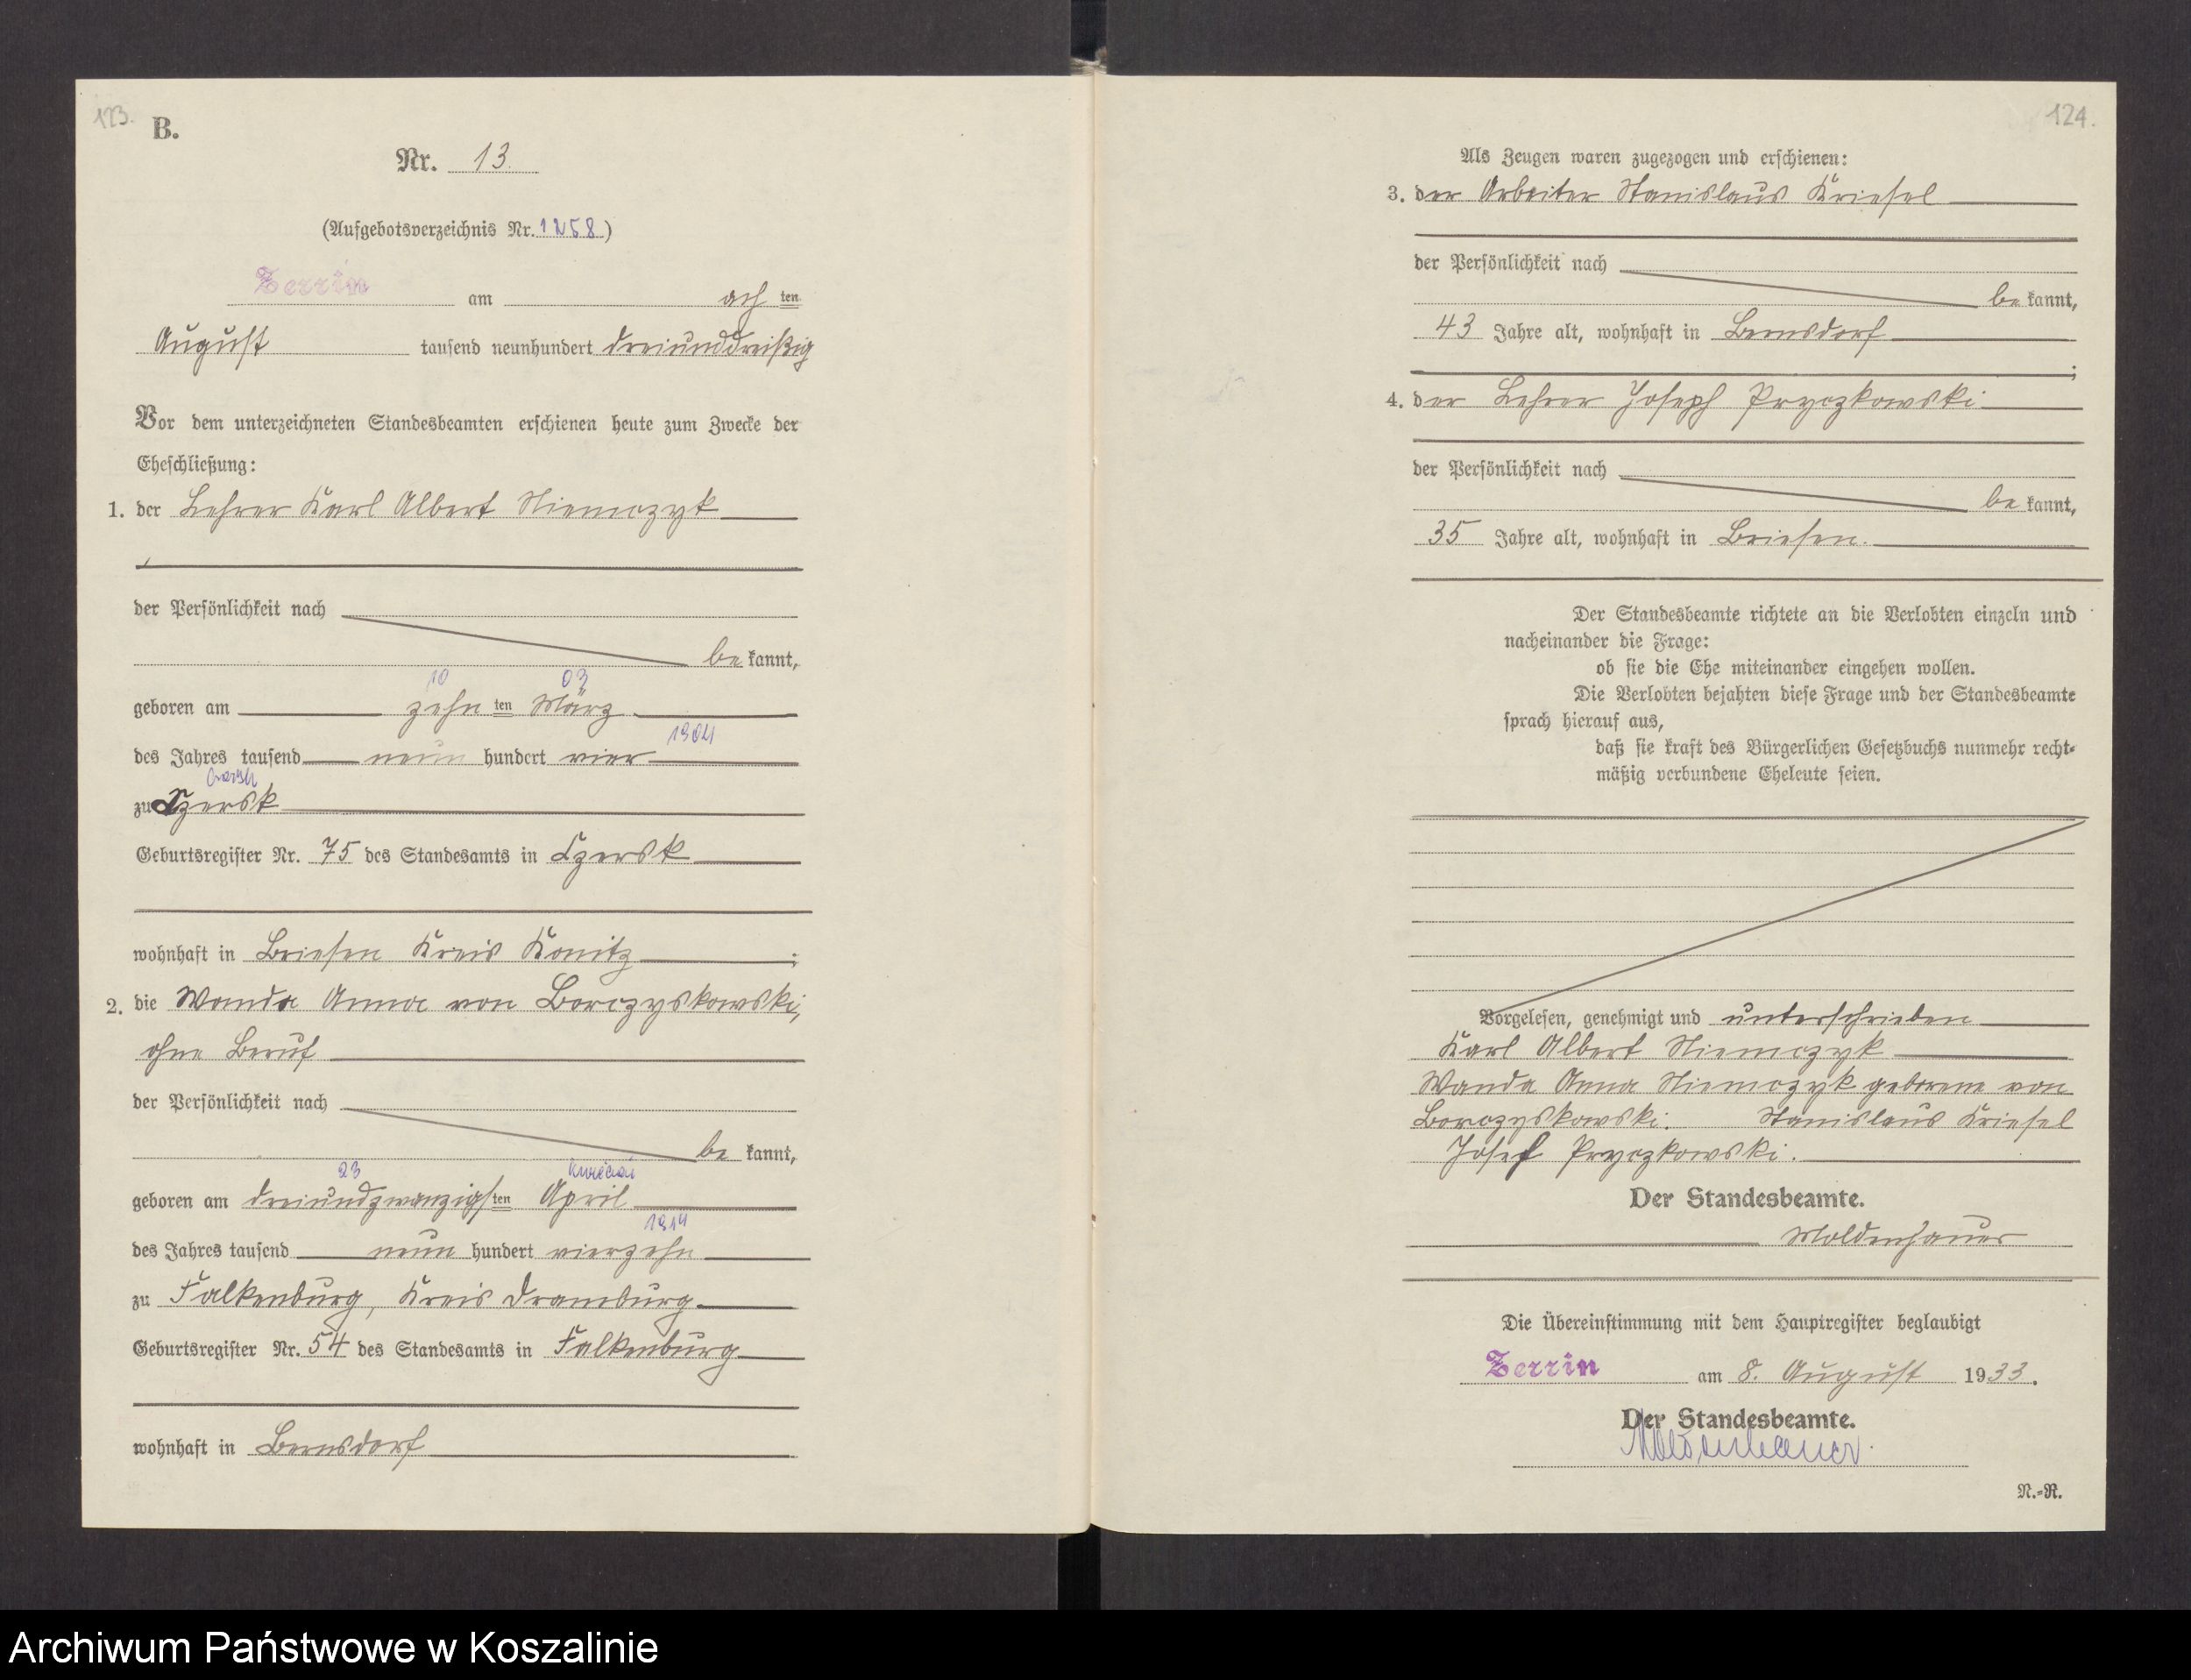 123.
B.
Nr. 13.
(Aufgebotsverzeichnis Nr. 1258.)
Zerrin am ach ten
August tausend neunhundert dreiunddreißig
Vor dem unterzeichneten Standesbeamten erschienen heute zum Zwecke der
Eheschließung:
1. der Lehrer Karl Albert Niemczyk
der Persönlichkeit nach
be kannt,
10 03
geboren am zehn ten März
1904
des Jahres tausend neun hundert vier
Czersk
zu Czersk
Geburtsregister Nr. 75 des Standesamts in Czersk
wohnhaft in Briesen Kreis Konitz ;
2. die Wanda Anna von Borczyskowski,
ohne Beruf
der Persönlichkeit nach
be kannt,
23 kwiecień
geboren am dreiundzwanzigs ten April
1914
des Jahres tausend neun hundert vierzehn
zu Falkenburg, Kreis Dramburg
Geburtsregister Nr. 54 des Standesamts in Falkenburg
wohnhaft in Bernsdorf
124.
Als Zeugen waren zugezogen und erschienen:
3. der Arbeiter Stanislaus Kriesel
der Persönlichkeit nach
be kannt,
43 Jahre alt, wohnhaft in Bernsdorf
;
4. der Lehrer Joseph Pryczkowski
der Persönlichkeit nach
be kannt,
35 Jahre alt, wohnhaft in Briesen.
Der Standesbeamte richtete an die Verlobten einzeln und
nacheinander die Frage:
ob sie die Ehe miteinander eingehen wollen.
Die Verlobten bejahten diese Frage und der Standesbeamte
sprach hierauf aus,
daß sie kraft des Bürgerlichen Gesetzbuchs nunmehr recht-
mäßig verbundene Eheleute seien.
Vorgelesen, genehmigt und unterschrieben
Karl Albert Niemczyk
Wanda Anna Niemczyk geborene von
Borczyskowski. Stanislaus Kriesel
Josef Pryczkowski.
Der Standesbeamte.
Moldenhauer
Die Übereinstimmung mit dem Hauptregister beglaubigt
Zerrin am 8. August 1933.
Der Standesbeamte.
Moldenhauer.
N.-R.
Archiwum Państwowe w Koszalinie